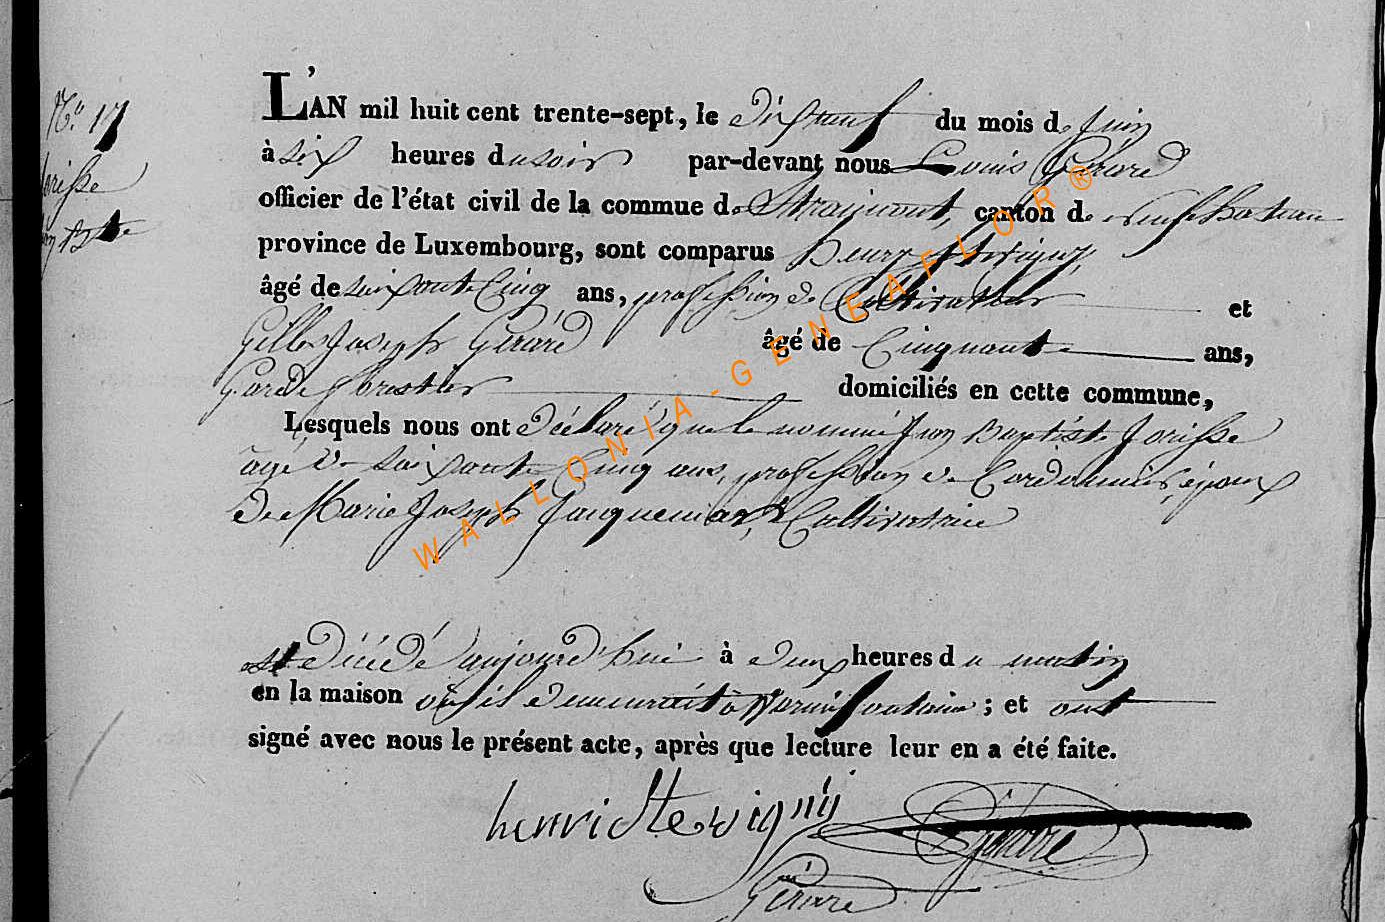 N.° 17
Jorisse
Jean Bte
L'AN mil huit cent trente-sept, le dix neuf du mois de Juin
à six heures du soir par-devant nous Louis Gérard
officier de l'état civil de la commune de Straimont, canton de Neufchateau
province de Luxembourg, sont comparus Henry
âgé de soixante Cinq ans, profession de Cultivateur et
Gilles Joseph Gérard âgé de Cinquante ans,
Garde forestier domiciliés en cette commune,
Lesquels nous ont déclaré que le nommé Jean Baptiste Jorisse
âgé de soixante Cinq ans, profession de Cordonnier, époux
de Marie Joseph Jacquemart, Cultivatrice
est décédé aujourd'hui à deux heures du matin
en la maison où il demeurait à Warmifontaine ; et ont
signé avec nous le présent acte, après que lecture leur en a été faite.
henri
Gérard
WALLONIA-GENEAFLOR®